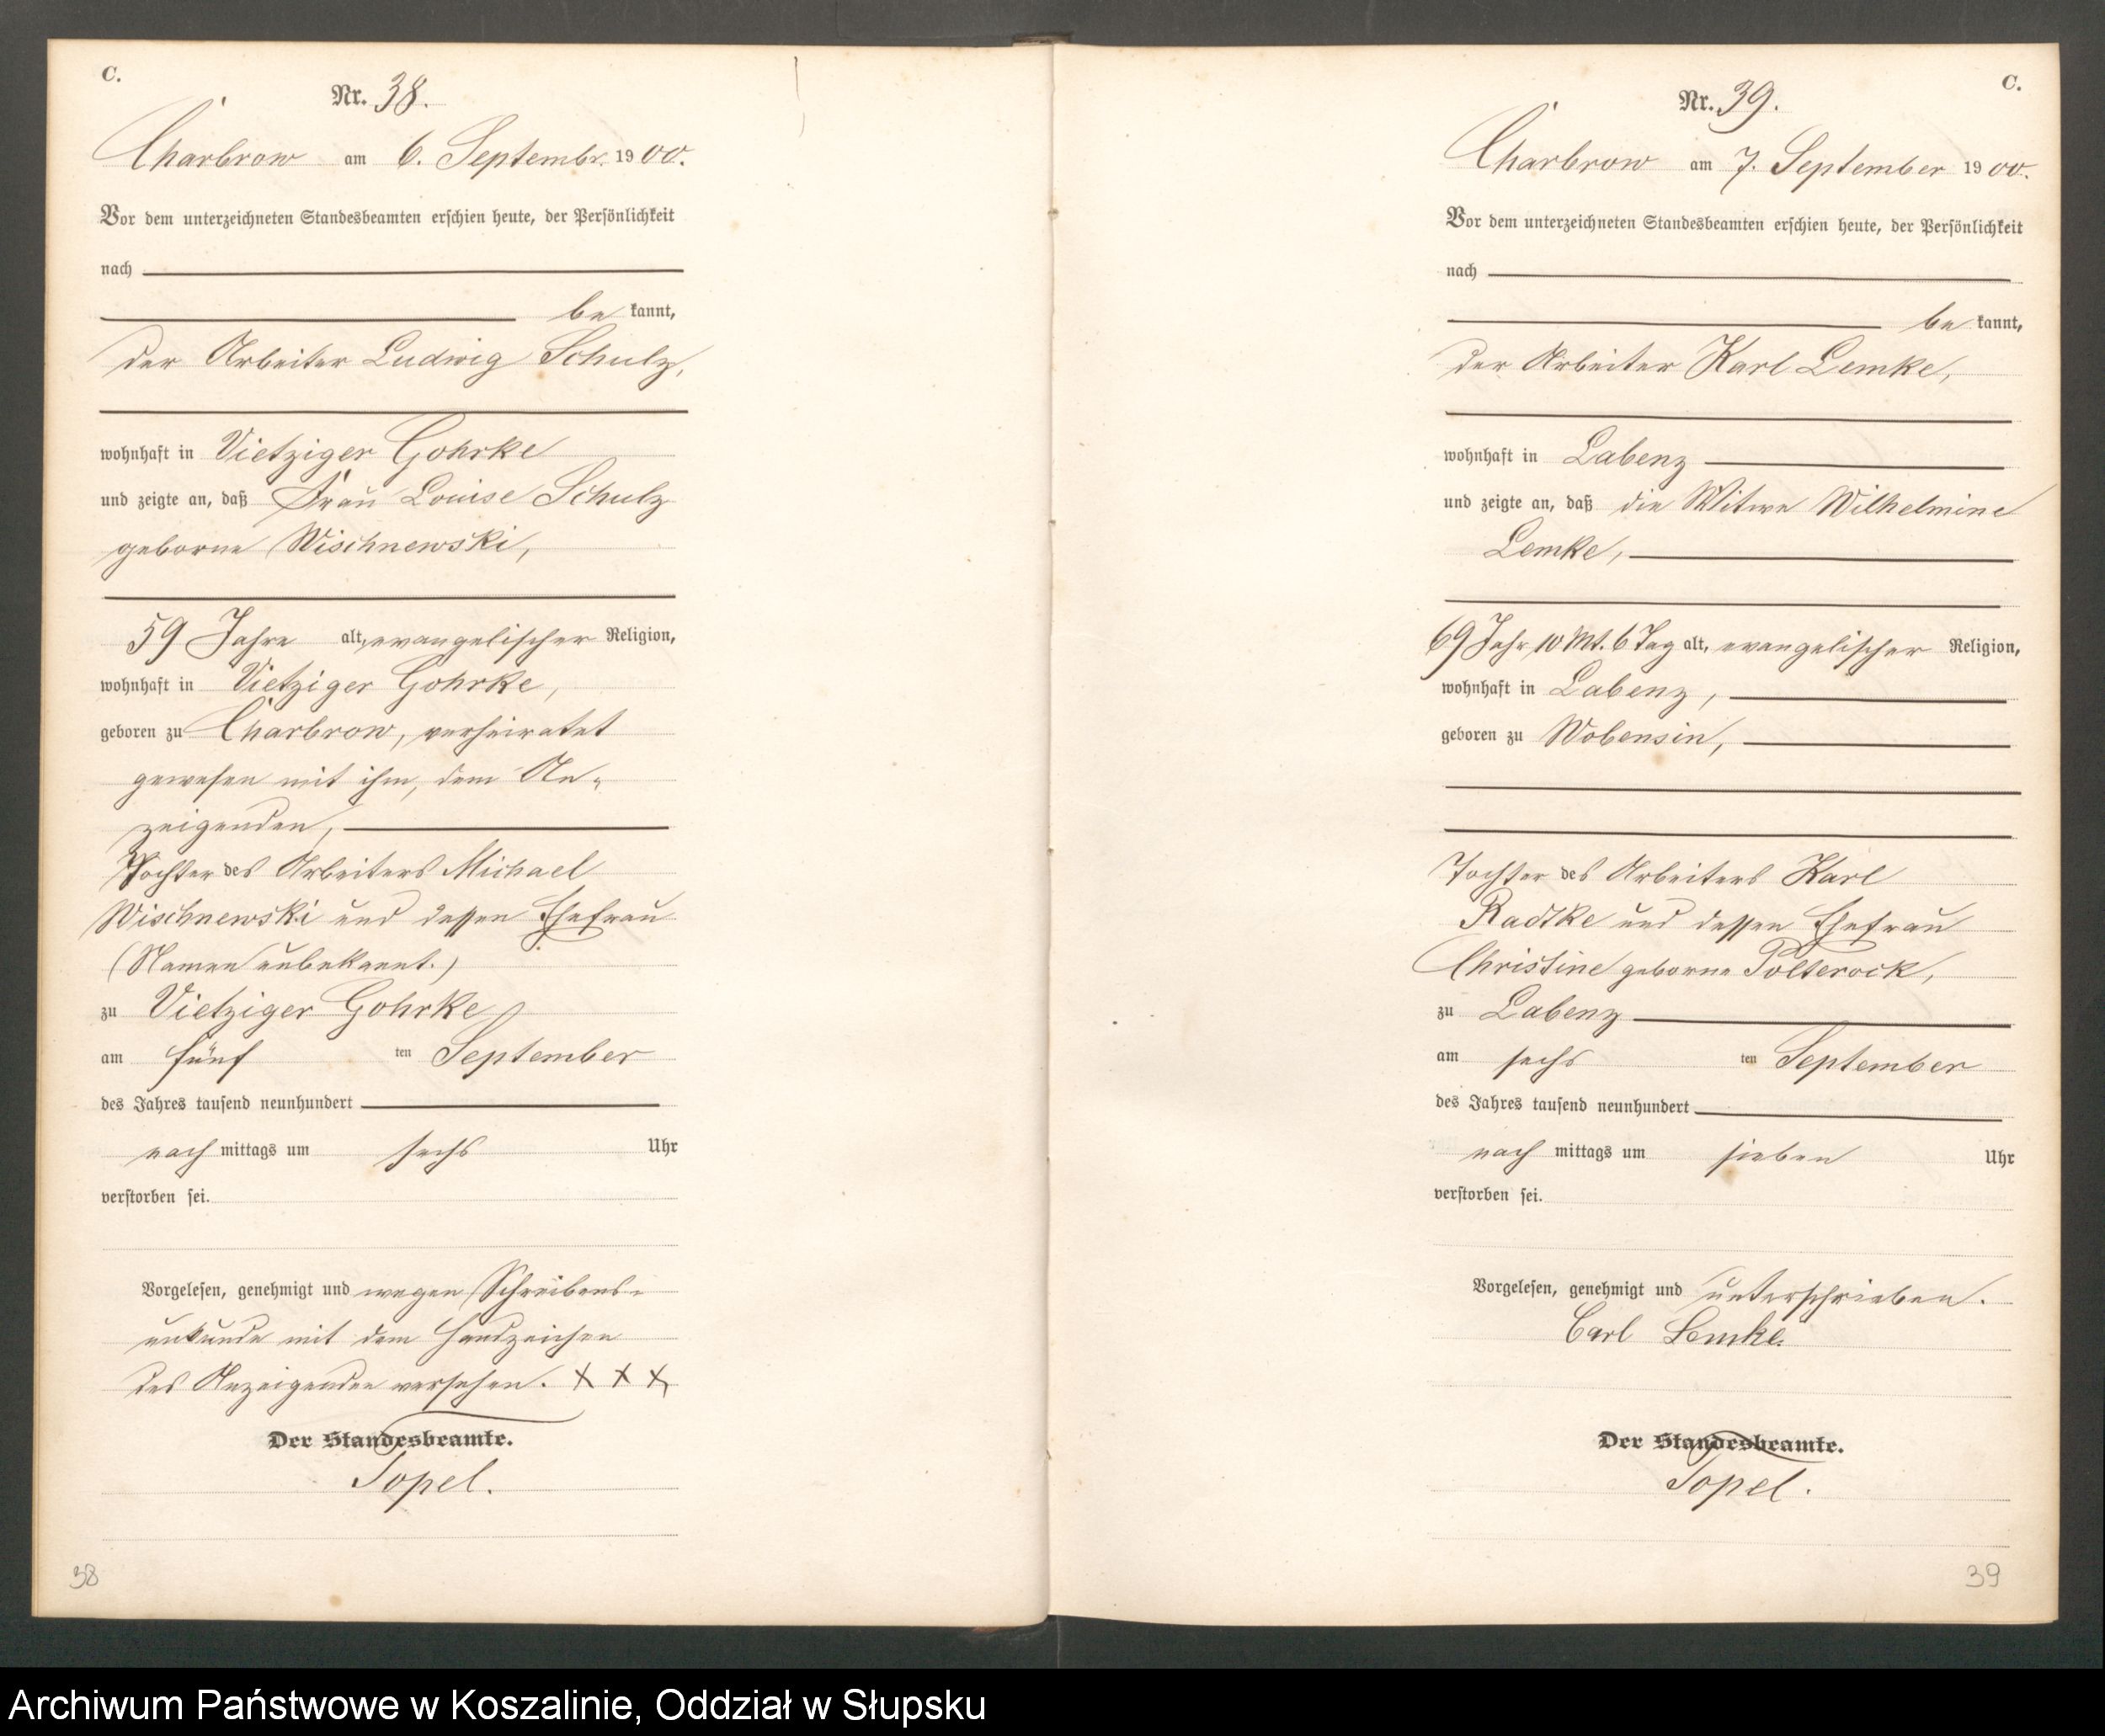 C.
Nr. 38.
Charbrow am 6. Septembr. 1900.
Vor dem unterzeichneten Standesbeamten erschien heute, der Persönlichkeit
nach
be kannt,
der Arbeiter Ludwig Schulz,
wohnhaft in Vietziger Gohrke
und zeigte an, daß Frau Louise Schulz
geborne Wischnewski,
59 Jahre alt, evangelischer Religion,
wohnhaft in Vietziger Gohrke,
geboren zu Charbrow, verheiratet
gewesen mit ihm, dem An-
zeigenden,
Tochter des Arbeiters Michael
Wischnewski und dessen Ehefrau
(Namen unbekannt.)
zu Vietziger Gohrke
am fünf ten September
des Jahres tausend neunhundert
nach mittags um sechs Uhr
verstorben sei.
Vorgelesen, genehmigt und wegen Schreibens-
unkunde mit dem Handzeichen
des Anzeigenden versehen. X X X
Der Standesbeamte.
Topel.
38
C.
Nr. 39.
Charbrow am 7. September 1900.
Vor dem unterzeichneten Standesbeamten erschien heute, der Persönlichkeit
nach
be kannt,
der Arbeiter Karl Lemke,
wohnhaft in Labenz
und zeigte an, daß die Witwe Wilhelmine
Lemke,
69 Jahr 10 Mt. 6 Tag alt, evangelischer Religion,
wohnhaft in Labenz,
geboren zu Wobensin,
Tochter des Arbeiters Karl
Radtke und dessen Ehefrau
Christine geborne Polterock,
zu Labenz
am sechs ten September
des Jahres tausend neunhundert
nach mittags um sieben Uhr
verstorben sei.
Vorgelesen, genehmigt und unterschrieben.
Carl Lemke.
Der Standesbeamte.
Topel.
39
Archiwum Państwowe w Koszalinie, Oddział w Słupsku